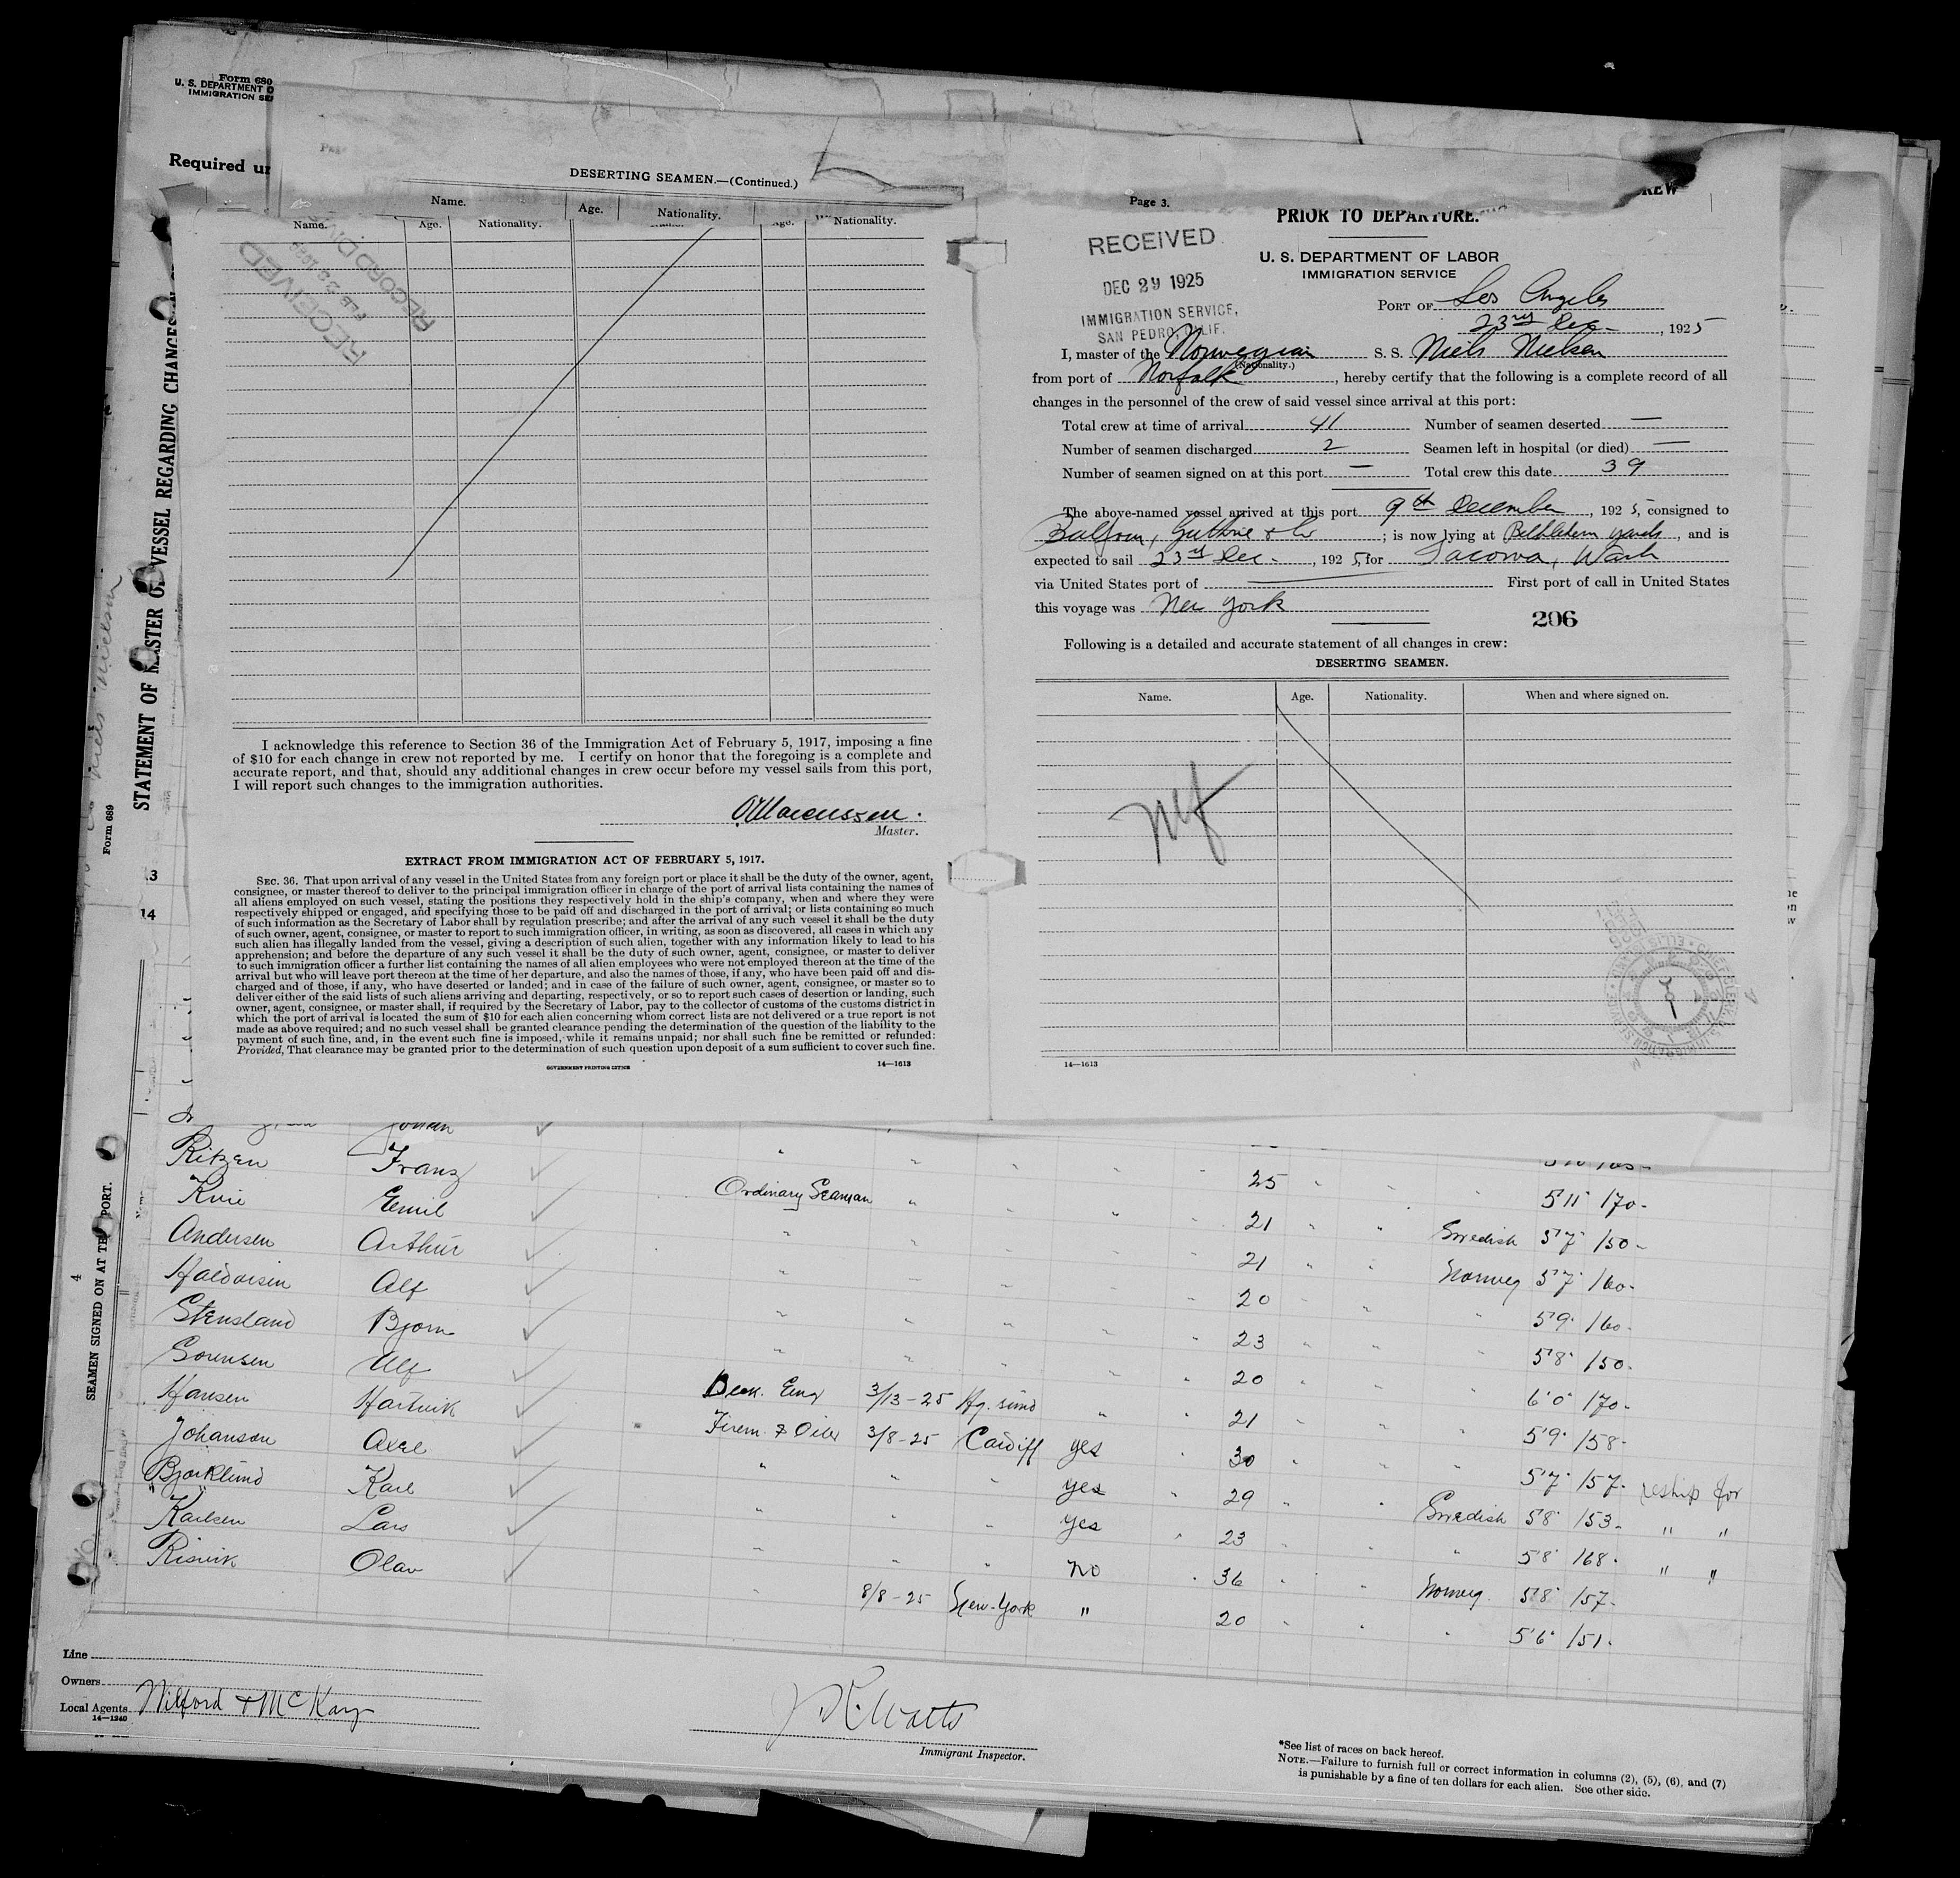 Form 680
U. S. DEPARTMENT O
IMMIGRATION SE
Required un
DESERTING SEAMEN.—(Continued.)
Name. Age. Nationality.
Name. Age. Nationality. Age. Nationality.
RECEIVED
RECORD DIV
I acknowledge this reference to Section 36 of the Immigration Act of February 5, 1917, imposing a fine
of $10 for each change in crew not reported by me. I certify on honor that the foregoing is a complete and
accurate report, and that, should any additional changes in crew occur before my vessel sails from this port,
I will report such changes to the immigration authorities.
Master.
EXTRACT FROM IMMIGRATION ACT OF FEBRUARY 5, 1917.
SEC. 36. That upon arrival of any vessel in the United States from any foreign port or place it shall be the duty of the owner, agent,
consignee, or master thereof to deliver to the principal immigration officer in charge of the port of arrival lists containing the names of
all aliens employed on such vessel, stating the positions they respectively hold in the ship's company, when and where they were
respectively shipped or engaged, and specifying those to be paid off and discharged in the port of arrival; or lists containing so much
of such information as the Secretary of Labor shall by regulation prescribe; and after the arrival of any such vessel it shall be the duty
of such owner, agent, consignee, or master to report to such immigration officer, in writing, as soon as discovered, all cases in which any
such alien has illegally landed from the vessel, giving a description of such alien, together with any information likely to lead to his
apprehension; and before the departure of any such vessel it shall be the duty of such owner, agent, consignee, or master to deliver
to such immigration officer a further list containing the names of all alien employees who were not employed thereon at the time of the
arrival but who will leave port thereon at the time of her departure, and also the names of those, if any, who have been paid off and dis-
charged and of those, if any, who have deserted or landed; and in case of the failure of such owner, agent, consignee, or master so to
deliver either of the said lists of such aliens arriving and departing, respectively, or so to report such cases of desertion or landing, such
owner, agent, consignee, or master shall, if required by the Secretary of Labor, pay to the collector of customs of the customs district in
which the port of arrival is located the sum of $10 for each alien concerning whom correct lists are not delivered or a true report is not
made as above required; and no such vessel shall be granted clearance pending the determination of the question of the liability to the
payment of such fine, and, in the event such fine is imposed, while it remains unpaid; nor shall such fine be remitted or refunded:
Provided, That clearance may be granted prior to the determination of such question upon deposit of a sum sufficient to cover such fine.
GOVERNMENT PRINTING OFFICE 14—1613
Page 3.
REW
PRIOR TO DEPARTURE.
RECEIVED
DEC 29 1925
IMMIGRATION SERVICE,
SAN PEDRO, CALIF.
U. S. DEPARTMENT OF LABOR
IMMIGRATION SERVICE
PORT OF Los Angeles
23rd Dec , 1925
I, master of the Norwegian S. S. Niels Nielsen
(Nationality.)
from port of Norfolk , hereby certify that the following is a complete record of all
changes in the personnel of the crew of said vessel since arrival at this port:
Total crew at time of arrival 41 Number of seamen deserted —
Number of seamen discharged 2 Seamen left in hospital (or died) —
Number of seamen signed on at this port — Total crew this date 39
The above-named vessel arrived at this port 9th December , 1925, consigned to
Balfour, Guthrie & Co ; is now lying at Bethlehem yards , and is
expected to sail 23rd Dec. , 1925, for Tacoma, Wash
via United States port of — First port of call in United States
this voyage was New York
206
Following is a detailed and accurate statement of all changes in crew:
DESERTING SEAMEN.
Name. Age. Nationality. When and where signed on.
14—1613
STATEMENT OF MASTER OF VESSEL REGARDING CHANGES
Form 689
13
14
4
SEAMEN SIGNED ON AT THE PORT.
Johan
Ritzen Franz 25 5'11" 170-
Emil Ordinary Seaman 21 Swedish 5'7" 150-
Andersen Arthur 21 Norweg 5'7" 160-
Haldorsen Alf 20 5'9" 160-
Stensland Bjorn 23 5'8" 150-
Sorensen Alf 20 6'0" 170-
Hansen Hartvik Deck. Eng 3/13-25 21 5'9" 158-
Johanson Axel Firem & Oiler 3/8-25 Cardiff yes 30 5'7" 157- reship for
Bjorklund Karl " " yes 29 Swedish 5'8" 153- " "
Karlsen Lars " " yes 23 " 5'8" 168- " "
Risvik Olav " " no 36 Norweg. 5'8" 157-
8/8-25 New-York " 20 " 5'6" 151-
Line
Owners
Local Agents Wilford & McKay
14—1240
Watts
Immigrant Inspector.
*See list of races on back hereof.
NOTE.—Failure to furnish full or correct information in columns (2), (5), (6), and (7)
is punishable by a fine of ten dollars for each alien. See other side.